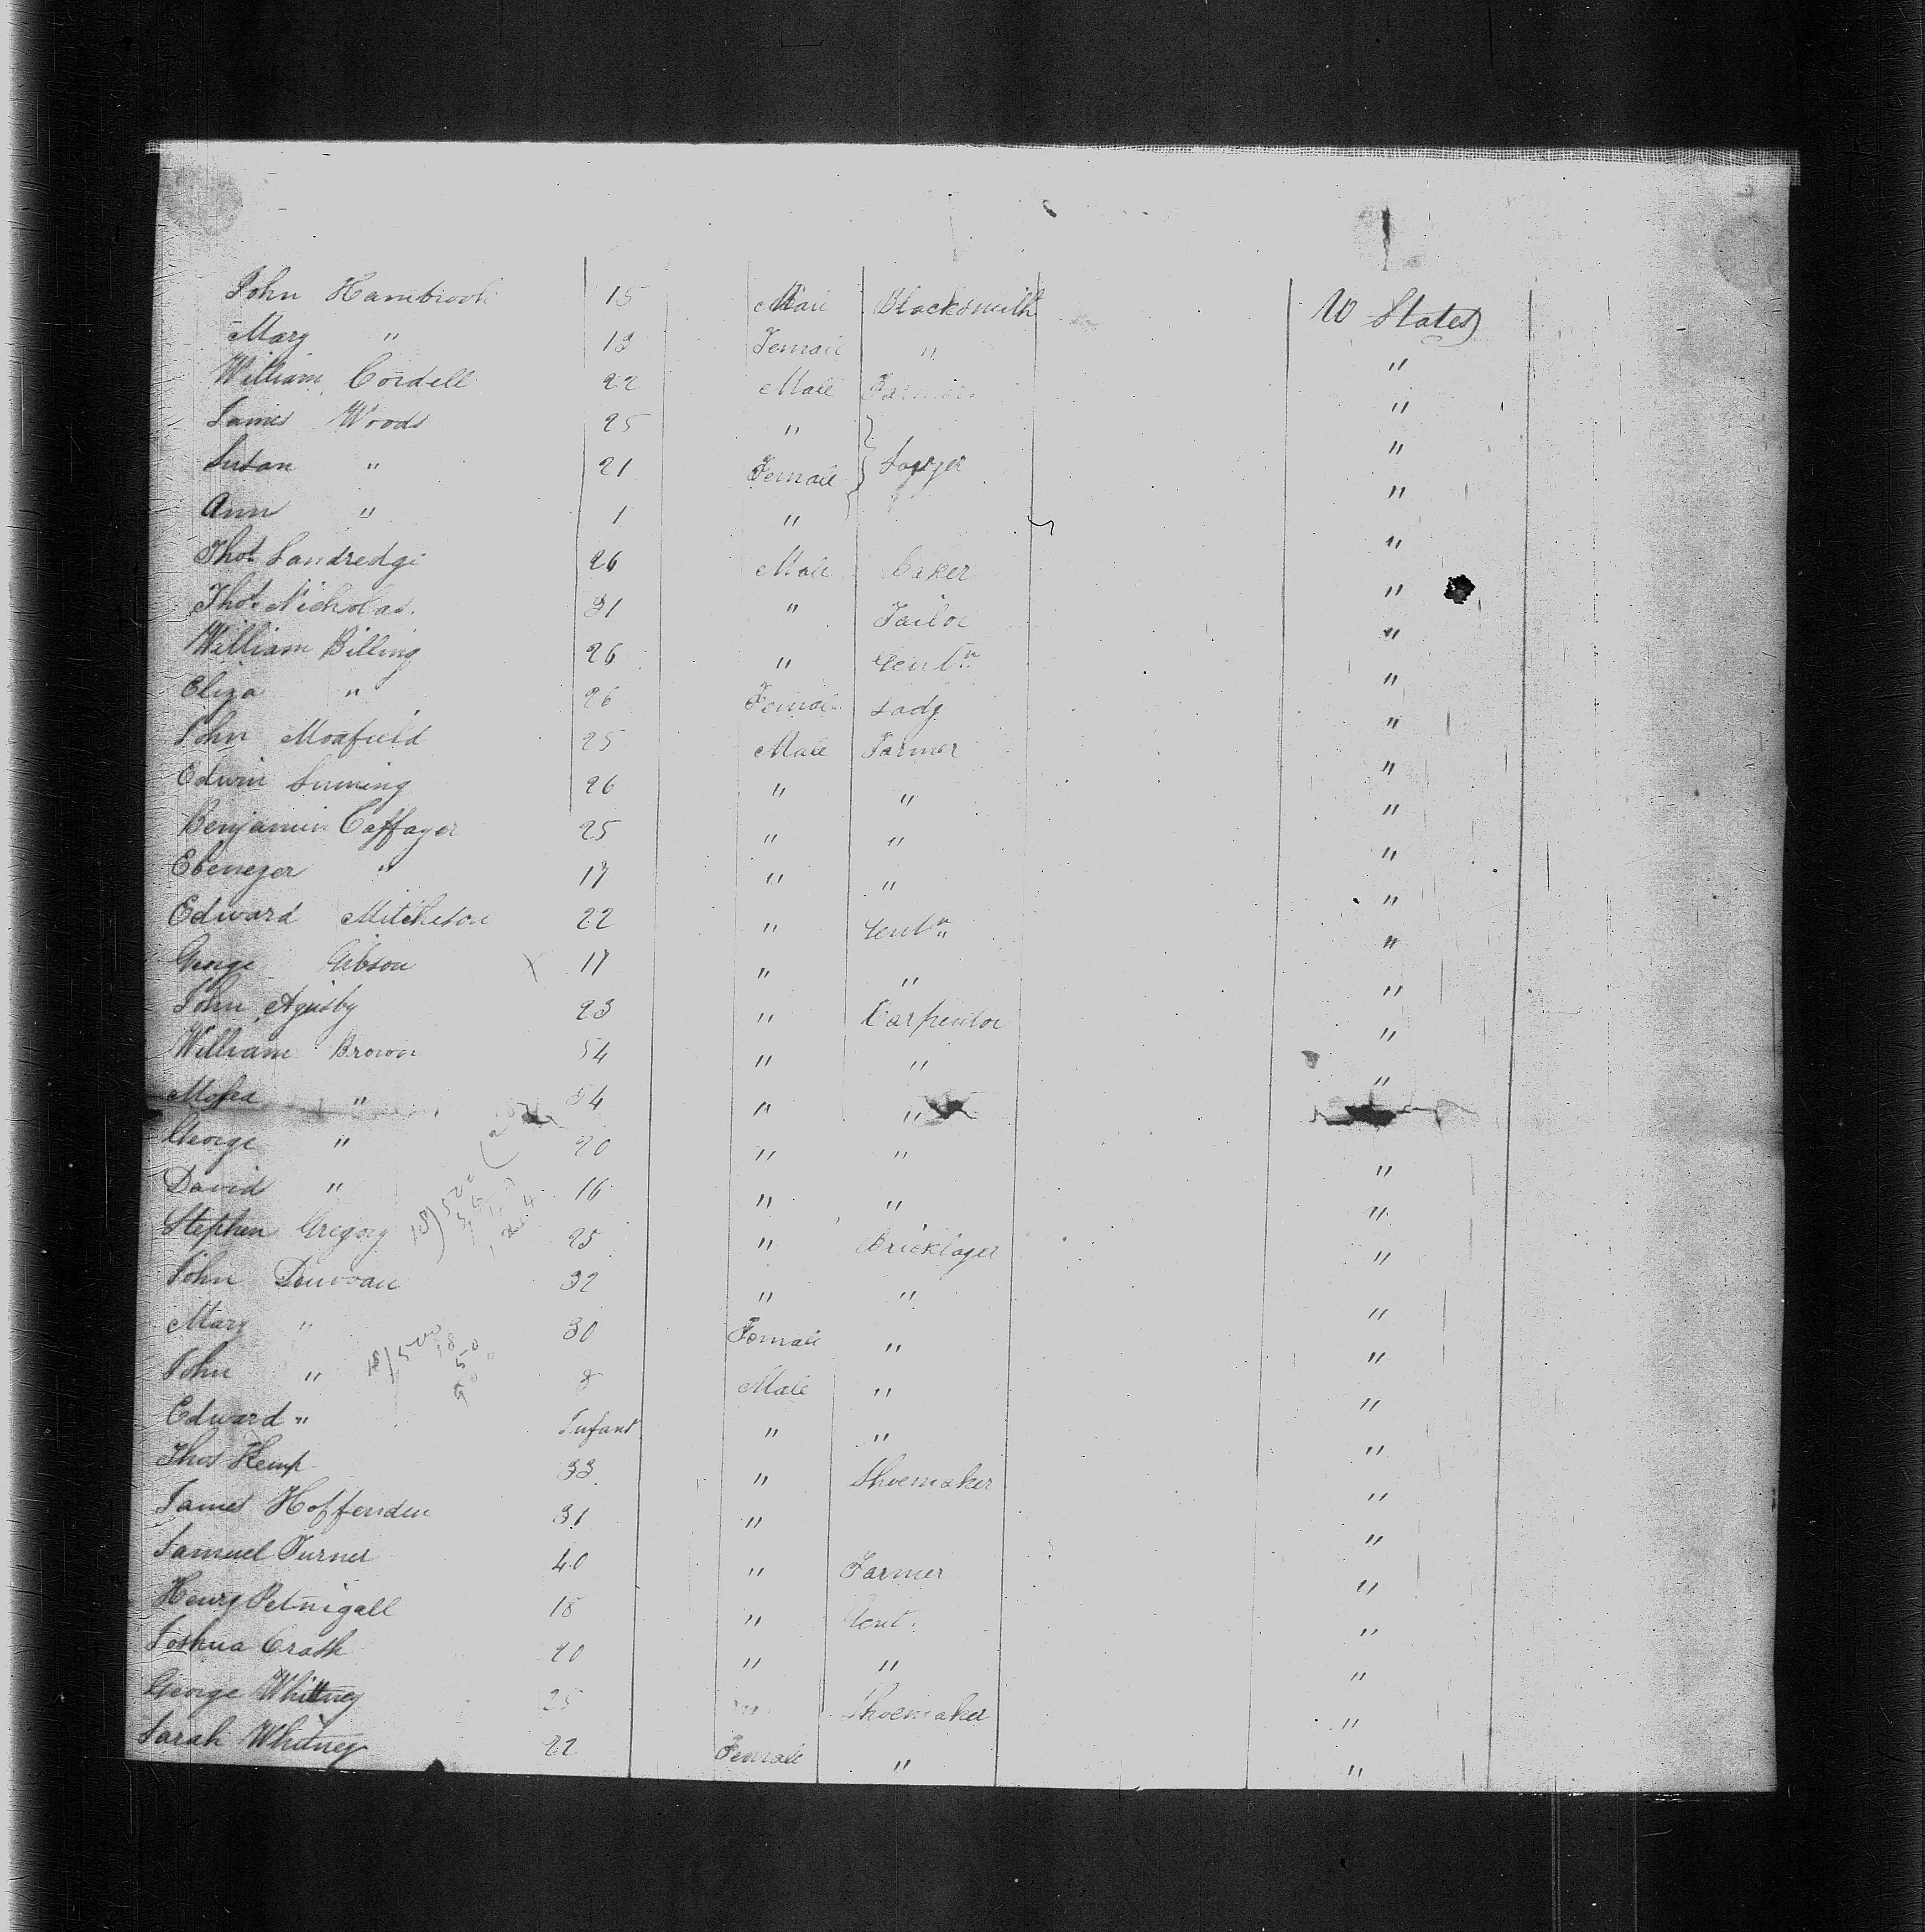 John Hambrook 15 Male Blacksmith U States
Mary " 13 Female " "
William Cordell 22 Male Farmer "
James Woods 25 " "
Susan " 21 Female Sawyer "
Ann " 1 " "
Thos Landredge 26 Male Baker "
Thos Nicholas. 31 " Tailor "
William Billing 26 " Gentn "
Eliza " 26 Female Lady "
John Moafield 25 Male Farmer "
Edwin 26 " " "
Benjamin Caffayer 25 " " "
Ebenezer " 17 " " "
Edward Mitchelson 22 " Gentn "
George Gibson 17 " " "
John 23 " Carpentor "
William Brown 54 " " "
" 54 " "
George " 20 " " "
David " 16 " " "
Stephen Gregory 25 " Bricklayer "
John Donovan 32 " "
Mary " 30 Female " "
John " 8 Male " "
Edward " Infant " " "
Thos Kemp 33 " Shoemaker "
James Hoffenden 31 " "
Samuel Turner 40 " Farmer "
Henry Petnigall 18 " Gent. "
Joshua Crash 20 " " "
George Whitney 25 " Shoemaker "
Sarah Whitney 22 Female " "